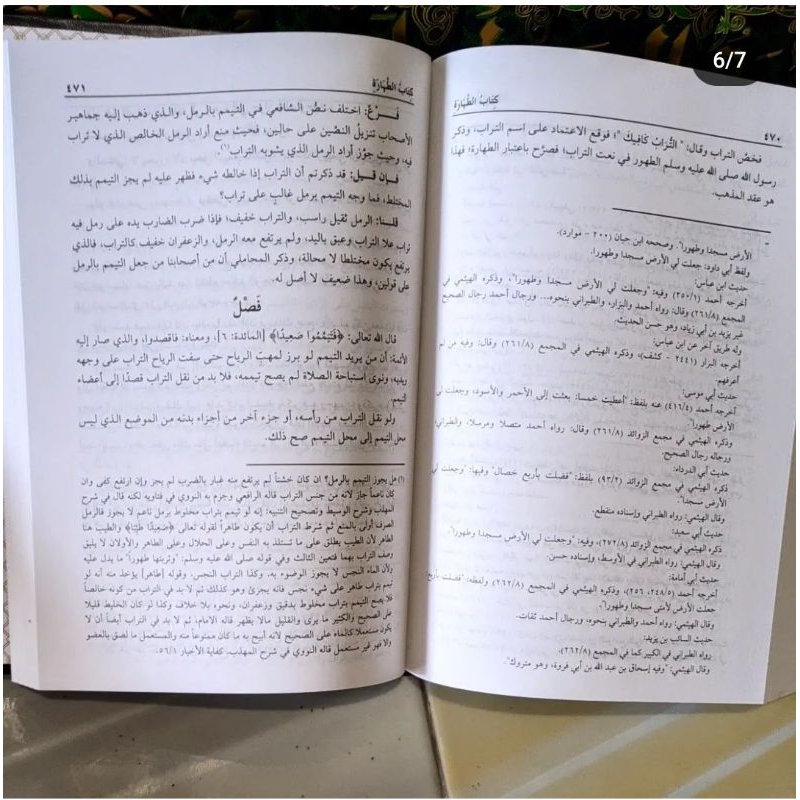 6/7
٤٧٠
كتاب الطهارة
فخصّ التراب وقال: "التُّرَابُ كَافِيكَ"؛ فوقع الاعتماد على اسم التراب، وذكر
رسول الله صلى الله عليه وسلم الطهور في نعت التراب؛ فصرّح باعتبار الطهارة؛ فهذا
هو عقد المذهب.
الأرض مسجدا وطهورا". وصححه ابن حبان (٢٠٠ - موارد).
ولفظ أبي داود: جعلت لي الأرض مسجدا وطهورا.
حديث ابن عباس:
أخرجه أحمد (٢٥٠/١) وفيه: "وجعلت لي الأرض مسجدا وطهورا"، وذكره الهيثمي في
المجمع (٢٦١/٨) وقال: رواه أحمد والبزار، والطبراني بنحوه... ورجال أحمد رجال الصحيح
غير يزيد بن أبي زياد، وهو حسن الحديث.
وله طريق آخر عن ابن عباس:
أخرجه البزار (٢٤٤١ - كشف)، وذكره الهيثمي في المجمع (٢٦١/٨) وقال: وفيه من لم
أعرفهم.
حديث أبي موسى:
أخرجه أحمد (٤١٦/٤) عنه بلفظ: "أعطيت خمسا: بعثت إلى الأحمر والأسود، وجعلت لي
الأرض طهورا".
وذكره الهيثمي في مجمع الزوائد (٢٦١/٨) وقال: رواه أحمد متصلا ومرسلا، والطبراني
ورجاله رجال الصحيح.
حديث أبي الدرداء:
ذكره الهيثمي في مجمع الزوائد (٩٣/٢) بلفظ: "فضلت بأربع خصال" وفيها: "وجعلت لي
الأرض مسجدا".
وقال الهيثمي: رواه الطبراني وإسناده منقطع.
حديث أبي سعيد:
ذكره الهيثمي في مجمع الزوائد (٢٧٢/٨)، وفيه: "وجعلت لي الأرض مسجدا وطهورا".
وقال الهيثمي: رواه الطبراني في الأوسط، وإسناده حسن.
حديث أبي أمامة:
أخرجه أحمد (٢٤٨/٥، ٢٥٦)، وذكره الهيثمي في المجمع (٢٦٢/٨) ولفظه: "فضلت بأربع
جعلت الأرض لأمتي مسجدا وطهورا".
وقال الهيثمي: رواه أحمد والطبراني بنحوه، ورجال أحمد ثقات.
حديث السائب بن يزيد:
رواه الطبراني في الكبير كما في المجمع (٢٦٢/٨).
وقال الهيثمي: "وفيه إسحاق بن عبد الله بن أبي فروة، وهو متروك".
كِتَابُ الطَّهَارَةِ
٤٧١
فَـــرْعٌ: اختلف نصّ الشافعي في التيمم بالرمل، والذي ذهب إليه جماهير
الأصحاب تنزيلُ النصّين على حالين، فحيث منع أراد الرمل الخالص الذي لا تراب
فيه، وحيث جوّز أراد الرمل الذي يشوبه التراب(١).
فـإن قـيـل: قد ذكرتم أن التراب إذا خالطه شيء فظهر عليه لم يجز التيمم بذلك
المختلط، فما وجه التيمم برمل غالبٍ على تراب؟
قلـنـا: الرمل ثقيل راسب، والتراب خفيف؛ فإذا ضرب الضارب يده على رمل فيه
تراب علا التراب وعبق باليد، ولم يرتفع معه الرمل، والزعفران خفيف كالتراب، فالذي
يرتفع يكون مختلطا لا محالة، وذكر المحاملي أن من أصحابنا من جعل التيمم بالرمل
على قولين، وهذا ضعيف لا أصل له.
فَصْلٌ
قال الله تعالى: ﴿فَتَيَمَّمُوا صَعِيدًا﴾ [المائدة: ٦]، ومعناه: فاقصدوا، والذي صار إليه
الأئمة: أن من يريد التيمم لو برز لمهبّ الرياح حتى سفت الرياح التراب على وجهه
ويديه، ونوى استباحة الصلاة لم يصح تيممه، فلا بد من نقل التراب قصدًا إلى أعضاء
التيمم.
ولو نقل التراب من رأسه، أو جزء آخر من أجزاء بدنه من الموضع الذي ليس
محل التيمم إلى محل التيمم صح ذلك.
(١) هل يجوز التيمم بالرمل؟ ان كان خشناً لم يرتفع منه غبار بالضرب لم يجز وإن ارتفع كفى وان
كان ناعماً جاز لأنه من جنس التراب قاله الرافعي وجزم به النووي في فتاويه لكنه قال في شرح
المهذب وشرح الوسيط وتصحيح التنبيه: إنه لو تيمم بتراب مخلوط برمل ناعم لا يجوز فالرمل
الصرف أولى بالمنع ثم شرط التراب أن يكون طاهراً لقوله تعالى ﴿صَعِيدًا طَيِّبًا﴾ والطيب هنا
الطاهر لأن الطيب يطلق على ما تستلذ به النفس وعلى الحلال وعلى الطاهر والأولان لا يليق
وصف التراب بهما فتعين الثالث وفي قوله صلى الله عليه وسلم: "وتربتها طهورا" ما يدل عليه
ولأن الماء النجس لا يجوز الوضوء به. وكذا التراب النجس. وقوله (طاهر) يؤخذ منه أنه لو
تيمم بتراب طاهر على شيء نجس فانه يجزئ وهو كذلك ثم لا بد في التراب من كونه خالصاً
فلا يصح التيمم بتراب مخلوط بدقيق وزعفران، ونحوه بلا خلاف وكذا لو كان الخليط قليلا
على الصحيح والكثير ما يرى والقليل مالا يظهر قاله الامام، ثم لا بد في التراب أيضاً أن لا
يكون مستعملا كالماء على الصحيح لانه أبيح به ما كان ممنوعاً منه والمستعمل ما لصق بالعضو
والا فهو غير مستعمل قاله النووي في شرح المهذب. كفاية الأخيار ٥٦/١.